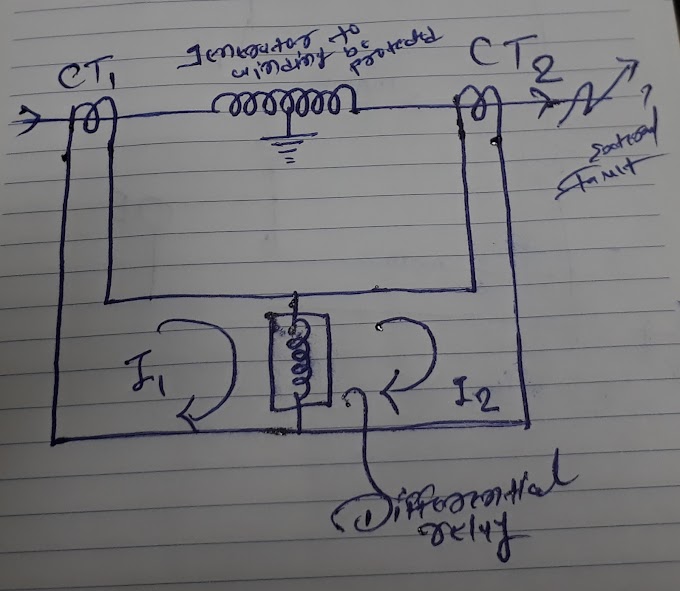 CT1
Generator to
winding be
protected
CT2
External
fault
I1
I2
Differential
relay